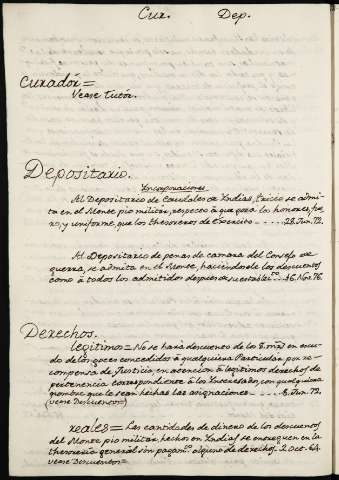 Cur. Dep.
Curadór =
Vease tutór.
Depositario.
Incorporaciones.
Al Depositario de Caudales de Indias, é
se admi-
ta en el Monte pio militar, respecto à que goza los honores, fue-
ro, y uniforme, que los thesoreros de Exercito - - - - - 28. Jun. 72.
Al Depositario de penas de camara del Consejo de
guerra, se admita en el Monte, haciendosele los descuentos
como à todos los admitidos despues de su establecim.to - - 16. Nov. 76.
Derechos.
legitimos = No se hará descuento de los 8. mrs. en escu-
do de los goces concedidos à qualquiera Particular por re-
compensa de Justicia, en atencion à legitimos derechos de
pertenencia correspondiente à los Interesados, con qualquiera
nombre que le sean hechas las asignaciones - - - - 8. Jun. 72.
(vease Descuentos)
reales = Las cantidades de dinero de los descuentos
del Monte pio militar, hechos en Indias se entreguen en la
thesoreria general sin pagam.to alguno de derechos. 2. Oct. 64.
vease Descuentos =